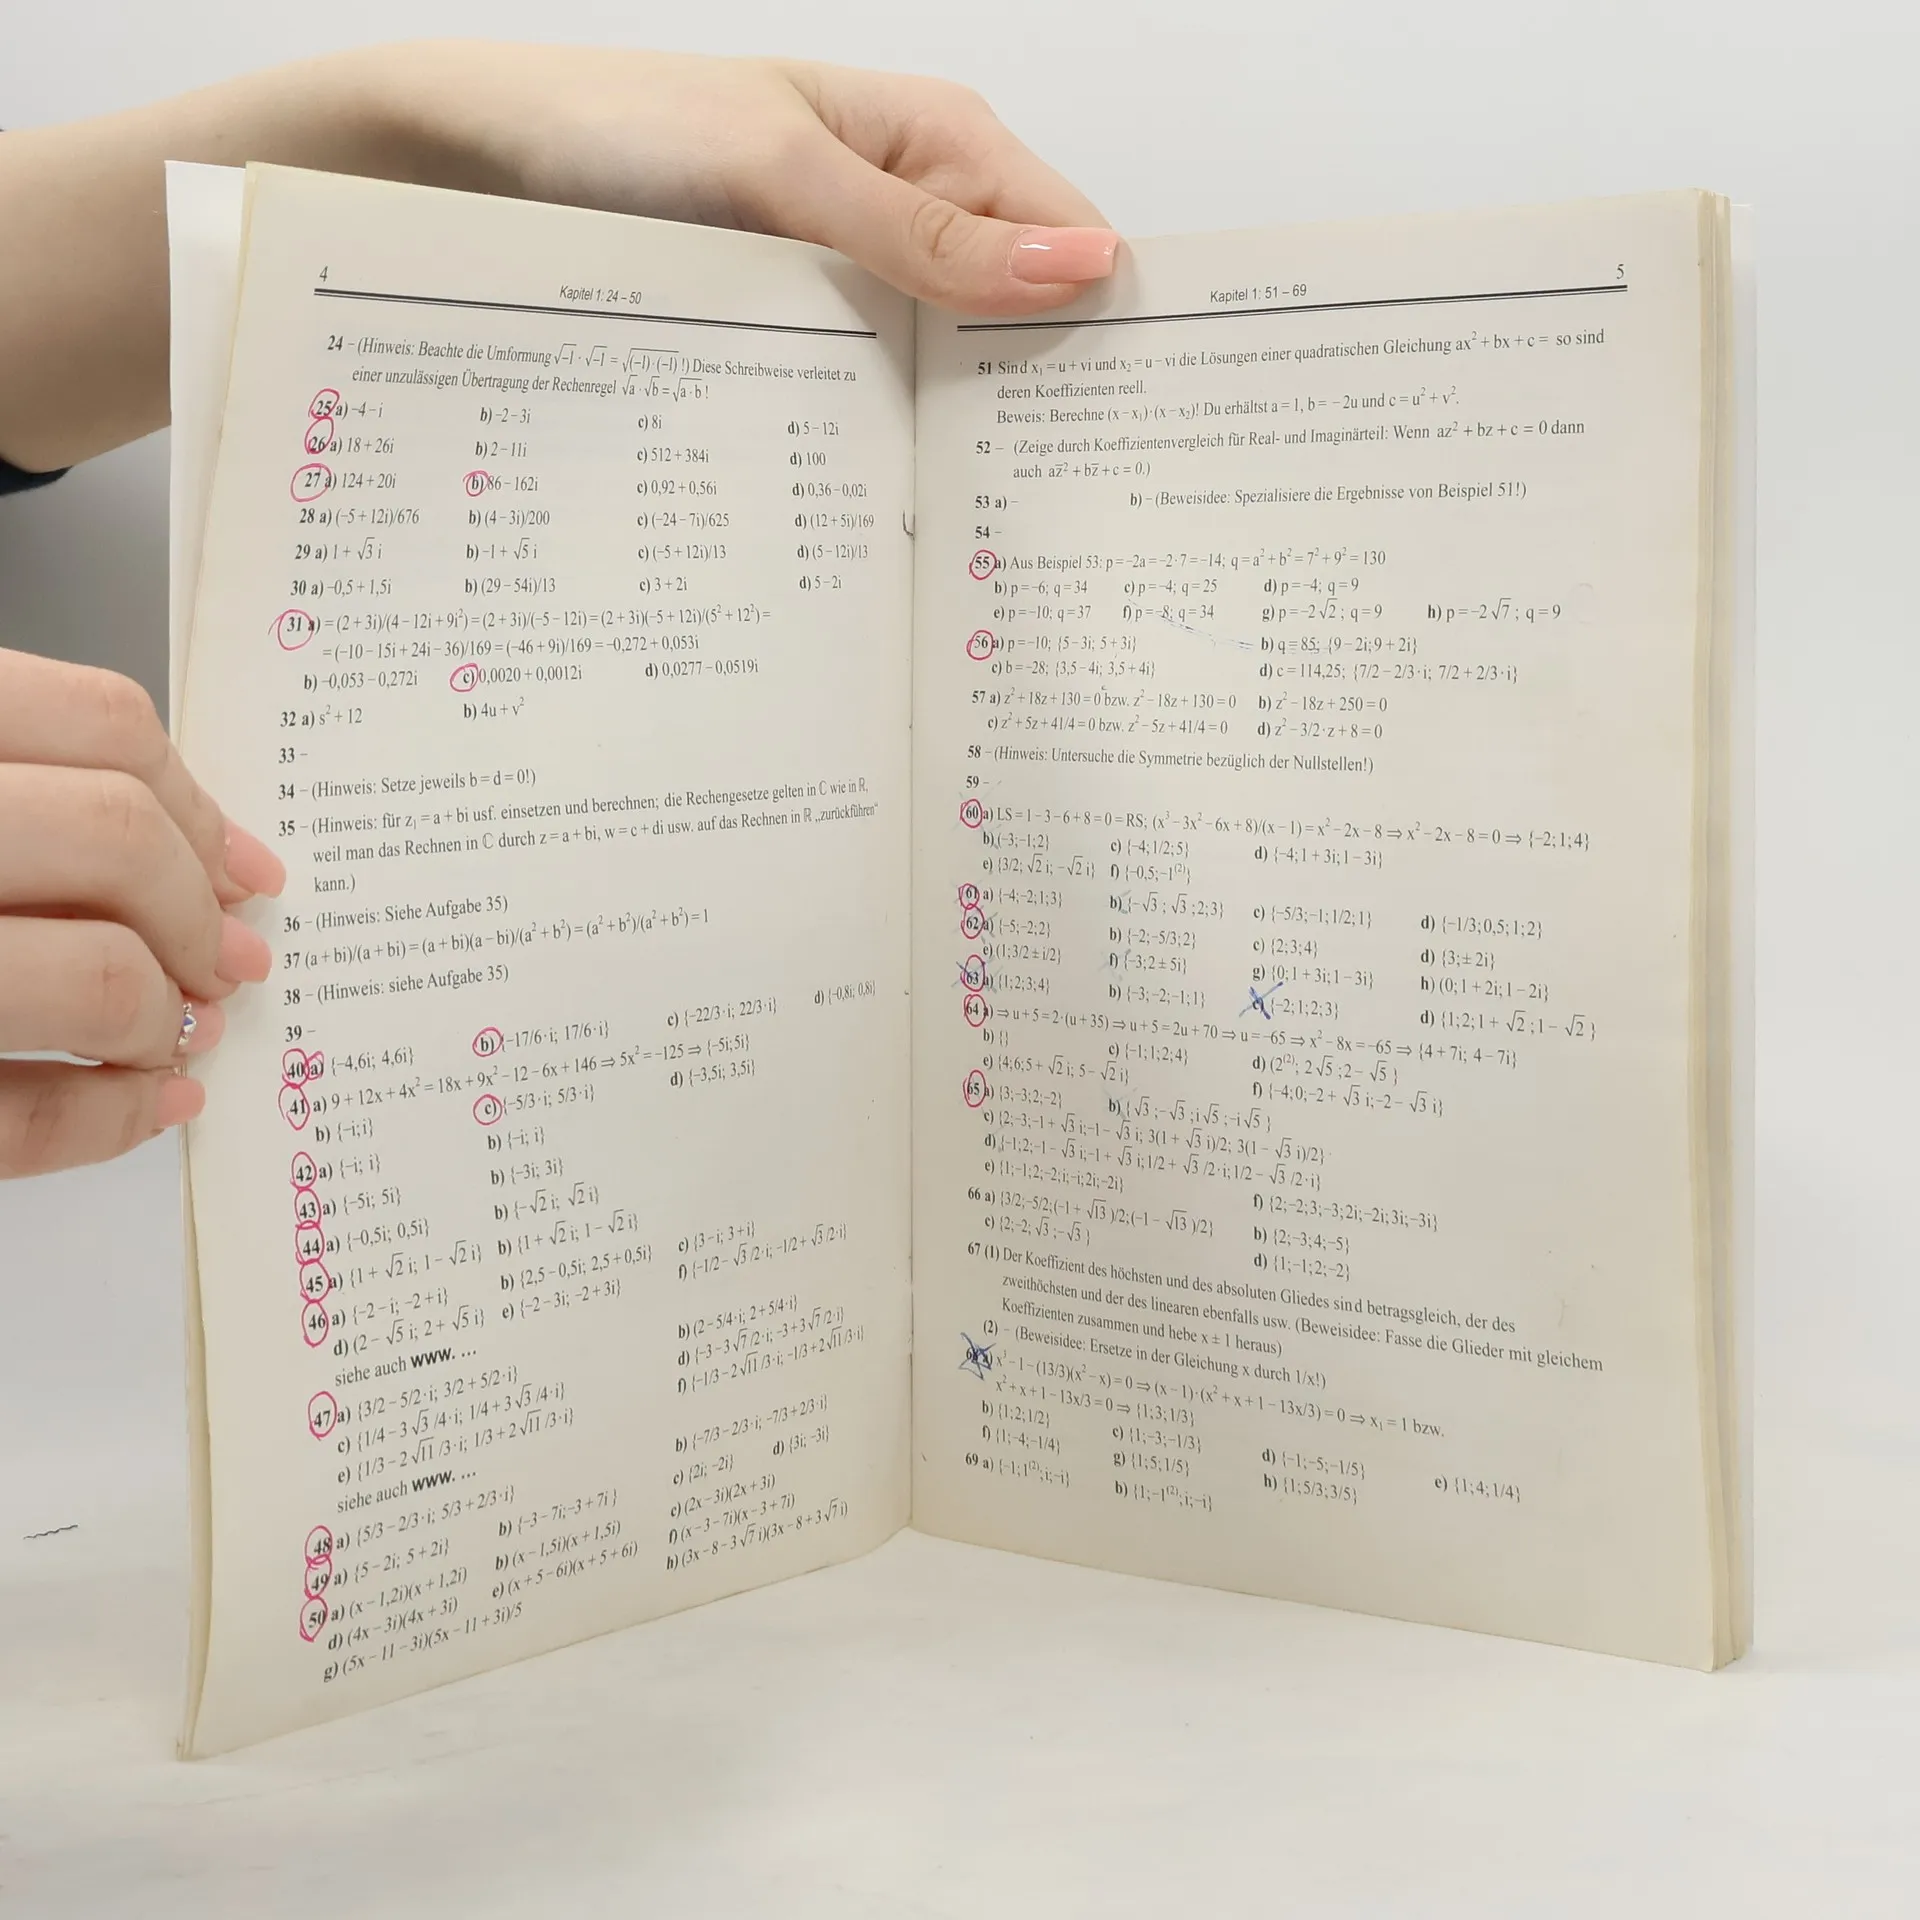 4
Kapitel 1: 24 – 50
24 – (Hinweis: Beachte die Umformung √–1 · √–1 = √(–1)·(–1) !) Diese Schreibweise verleitet zu
einer unzulässigen Übertragung der Rechenregel √a · √b = √a·b !
25 a) –4 – i b) –2 – 3i c) 8i d) 5 – 12i
26 a) 18 + 26i b) 2 – 11i c) 512 + 384i d) 100
27 a) 124 + 20i b) 86 – 162i c) 0,92 + 0,56i d) 0,36 – 0,02i
28 a) (–5 + 12i)/676 b) (4 – 3i)/200 c) (–24 – 7i)/625 d) (12 + 5i)/169
29 a) 1 + √3 i b) –1 + √5 i c) (–5 + 12i)/13 d) (5 – 12i)/13
30 a) –0,5 + 1,5i b) (29 – 54i)/13 c) 3 + 2i d) 5 – 2i
31 a) = (2 + 3i)/(4 – 12i + 9i²) = (2 + 3i)/(–5 – 12i) = (2 + 3i)(–5 + 12i)/(5² + 12²) =
= (–10 – 15i + 24i – 36)/169 = (–46 + 9i)/169 = –0,272 + 0,053i
b) –0,053 – 0,272i c) 0,0020 + 0,0012i d) 0,0277 – 0,0519i
32 a) s² + 12 b) 4u + v²
33 –
34 – (Hinweis: Setze jeweils b = d = 0!)
35 – (Hinweis: für z₁ = a + bi usf. einsetzen und berechnen; die Rechengesetze gelten in ℂ wie in ℝ,
weil man das Rechnen in ℂ durch z = a + bi, w = c + di usw. auf das Rechnen in ℝ „zurückführen“
kann.)
36 – (Hinweis: Siehe Aufgabe 35)
37 (a + bi)/(a + bi) = (a + bi)(a – bi)/(a² + b²) = (a² + b²)/(a² + b²) = 1
38 – (Hinweis: siehe Aufgabe 35)
39 –
40 a) {–4,6i; 4,6i} b) {–17/6·i; 17/6·i} c) {–22/3·i; 22/3·i} d) {–0,8i; 0,8i}
41 a) 9 + 12x + 4x² = 18x + 9x² – 12 – 6x + 146 ⇒ 5x² = –125 ⇒ {–5i; 5i}
b) {–i; i} c) {–5/3·i; 5/3·i} d) {–3,5i; 3,5i}
42 a) {–i; i} b) {–i; i}
43 a) {–5i; 5i} b) {–3i; 3i}
44 a) {–0,5i; 0,5i} b) {–√2 i; √2 i}
45 a) {1 + √2 i; 1 – √2 i} b) {1 + √2 i; 1 – √2 i}
46 a) {–2 – i; –2 + i} b) {2,5 – 0,5i; 2,5 + 0,5i} c) {3 – i; 3 + i}
d) (2 – √5 i; 2 + √5 i} e) {–2 – 3i; –2 + 3i} f) {–1/2 – √3/2·i; –1/2 + √3/2·i}
siehe auch www. ...
47 a) {3/2 – 5/2·i; 3/2 + 5/2·i} b) (2 – 5/4·i; 2 + 5/4·i}
c) {1/4 – 3√3/4·i; 1/4 + 3√3/4·i} d) {–3 – 3√7/2·i; –3 + 3√7/2·i}
e) {1/3 – 2√11/3·i; 1/3 + 2√11/3·i} f) {–1/3 – 2√11/3·i; –1/3 + 2√11/3·i}
siehe auch www. ...
48 a) {5/3 – 2/3·i; 5/3 + 2/3·i} b) {–7/3 – 2/3·i; –7/3 + 2/3·i}
49 a) {5 – 2i; 5 + 2i} b) {–3 – 7i; –3 + 7i} c) {2i; –2i} d) {3i; –3i}
50 a) (x – 1,2i)(x + 1,2i) b) (x – 1,5i)(x + 1,5i) c) (2x – 3i)(2x + 3i)
d) (4x – 3i)(4x + 3i) e) (x + 5 – 6i)(x + 5 + 6i) f) (x – 3 – 7i)(x – 3 + 7i)
g) (5x – 11 – 3i)(5x – 11 + 3i)/5 h) (3x – 8 – 3√7 i)(3x – 8 + 3√7 i)
Kapitel 1: 51 – 69
5
51 Sind x₁ = u + vi und x₂ = u – vi die Lösungen einer quadratischen Gleichung ax² + bx + c = so sind
deren Koeffizienten reell.
Beweis: Berechne (x – x₁)·(x – x₂)! Du erhältst a = 1, b = – 2u und c = u² + v².
52 – (Zeige durch Koeffizientenvergleich für Real- und Imaginärteil: Wenn az² + bz + c = 0 dann
auch az̄² + bz̄ + c = 0.)
53 a) – b) – (Beweisidee: Spezialisiere die Ergebnisse von Beispiel 51!)
54 –
55 a) Aus Beispiel 53: p = –2a = –2·7 = –14; q = a² + b² = 7² + 9² = 130
b) p = –6; q = 34 c) p = –4; q = 25 d) p = –4; q = 9
e) p = –10; q = 37 f) p = –8; q = 34 g) p = –2√2; q = 9 h) p = –2√7; q = 9
56 a) p = –10; {5 – 3i; 5 + 3i} b) q = 85; {9 – 2i; 9 + 2i}
c) b = –28; {3,5 – 4i; 3,5 + 4i} d) c = 114,25; {7/2 – 2/3·i; 7/2 + 2/3·i}
57 a) z² + 18z + 130 = 0 bzw. z² – 18z + 130 = 0 b) z² – 18z + 250 = 0
c) z² + 5z + 41/4 = 0 bzw. z² – 5z + 41/4 = 0 d) z² – 3/2·z + 8 = 0
58 – (Hinweis: Untersuche die Symmetrie bezüglich der Nullstellen!)
59 –
60 a) LS = 1 – 3 – 6 + 8 = 0 = RS; (x³ – 3x² – 6x + 8)/(x – 1) = x² – 2x – 8 ⇒ x² – 2x – 8 = 0 ⇒ {–2; 1; 4}
b) (–3; –1; 2} c) {–4; 1/2; 5} d) {–4; 1 + 3i; 1 – 3i}
e) {3/2; √2 i; –√2 i} f) {–0,5; –1⁽²⁾}
61 a) {–4; –2; 1; 3} b) {–√3; √3; 2; 3} c) {–5/3; –1; 1/2; 1} d) {–1/3; 0,5; 1; 2}
62 a) {–5; –2; 2} b) {–2; –5/3; 2} c) {2; 3; 4} d) {3; ± 2i}
e) (1; 3/2 ± i/2} f) {–3; 2 ± 5i} g) {0; 1 + 3i; 1 – 3i} h) (0; 1 + 2i; 1 – 2i}
63 a) {1; 2; 3; 4} b) {–3; –2; –1; 1} c) {–2; 1; 2; 3} d) {1; 2; 1 + √2; 1 – √2}
64 a) ⇒ u + 5 = 2·(u + 35) ⇒ u + 5 = 2u + 70 ⇒ u = –65 ⇒ x² – 8x = –65 ⇒ {4 + 7i; 4 – 7i}
b) {} c) {–1; 1; 2; 4} d) (2⁽²⁾; 2√5; 2 – √5}
e) {4; 6; 5 + √2 i; 5 – √2 i} f) {–4; 0; –2 + √3 i; –2 – √3 i}
65 a) {3; –3; 2; –2} b) {√3; –√3; i√5; –i√5}
c) {2; –3; –1 + √3 i; –1 – √3 i; 3(1 + √3 i)/2; 3(1 – √3 i)/2}
d) {–1; 2; –1 – √3 i; –1 + √3 i; 1/2 + √3/2·i; 1/2 – √3/2·i}
e) {1; –1; 2; –2; i; –i; 2i; –2i} f) {2; –2; 3; –3; 2i; –2i; 3i; –3i}
66 a) {3/2; –5/2; (–1 + √13)/2; (–1 – √13)/2} b) {2; –3; 4; –5}
c) {2; –2; √3; –√3} d) {1; –1; 2; –2}
67 (1) Der Koeffizient des höchsten und des absoluten Gliedes sind betragsgleich, der des
zweithöchsten und der des linearen ebenfalls usw. (Beweisidee: Fasse die Glieder mit gleichem
Koeffizienten zusammen und hebe x ± 1 heraus)
(2) – (Beweisidee: Ersetze in der Gleichung x durch 1/x!)
68 a) x³ – 1 – (13/3)(x² – x) = 0 ⇒ (x – 1)·(x² + x + 1 – 13x/3) = 0 ⇒ x₁ = 1 bzw.
x² + x + 1 – 13x/3 = 0 ⇒ {1; 3; 1/3}
b) {1; 2; 1/2} c) {1; –3; –1/3} d) {–1; –5; –1/5} e) {1; 4; 1/4}
f) {1; –4; –1/4} g) {1; 5; 1/5} h) {1; 5/3; 3/5}
69 a) {–1; 1⁽²⁾; i; –i} b) {1; –1⁽²⁾; i; –i}